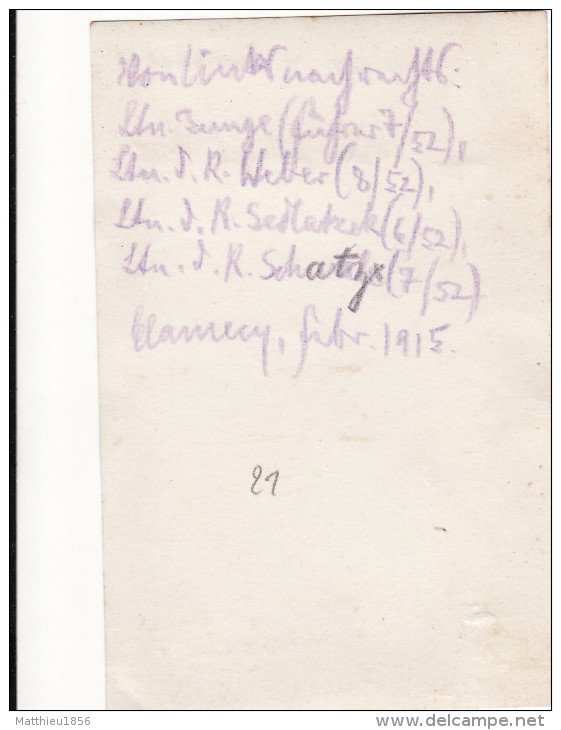 Von links nach rechts:
Ltn. Junge (Führer 7/52),
Ltn. d. R. Weber (8/52),
Ltn. d. R. Sedlatzek (6/52),
Ltn. d. R. (7/52)
Clamecy, Febr. 1915.
21
Matthieu1856
delcampe.net